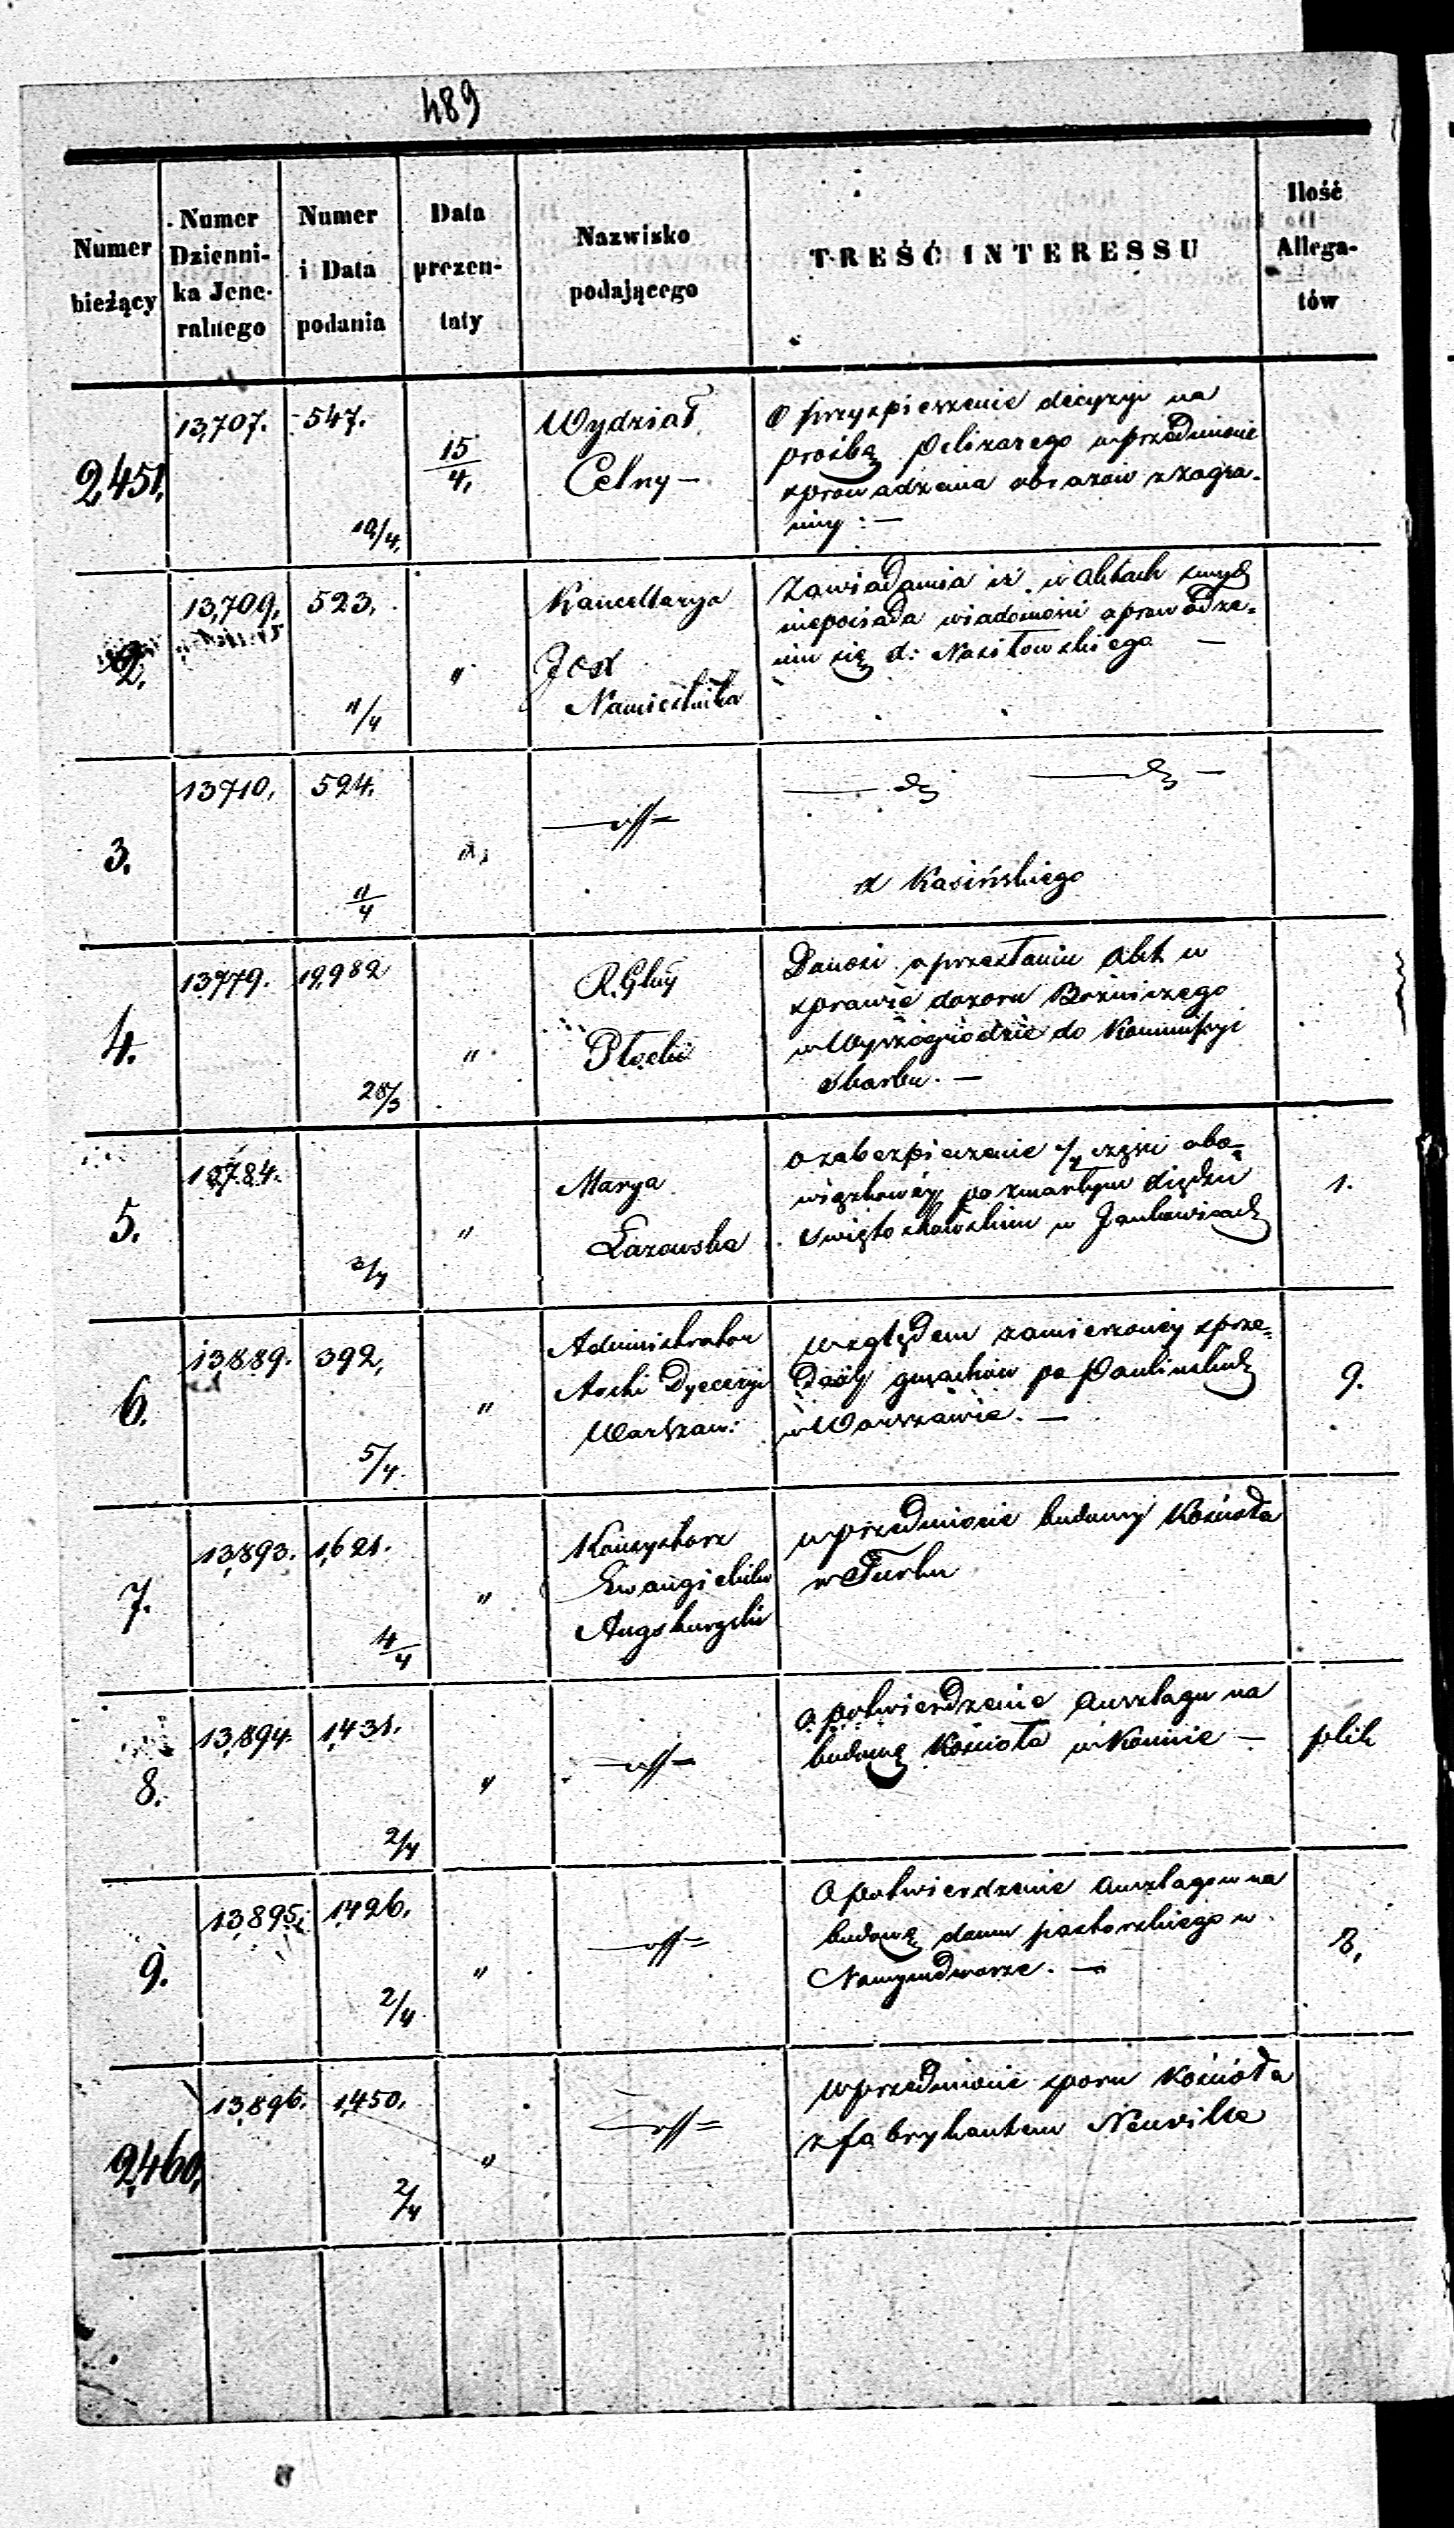 489
Numer bieżący
Numer Dzienni-ka Jene-ralnego
Numer i Data podania
Data prezen-taty
Nazwisko podającego
TREŚĆ INTERESSU
Ilość Allega-tów
2,451.
13,707.
547.
10/4.
15/4.
Wydział
Celny —
O przyspieszenie decyzyi na
prośbę Pelizarego w przedmiocie
sprowadzenia obrazów z zagra-
nicy : —
2.
13,709.
523.
11/4
"
Kancellarya
JOX
Namiestnika
Zawiadamia iż w aktach swych
nieposiada wiadomości o prowadze-
niu się d: Nasiłowskiego —
3.
13710.
524.
11/4
"
— „ —
— do — do —
X Kosińskiego
4.
13,779.
19,982
28/3
"
R. Głny
Płocki
Donosi o przesłaniu akt w
sprawie dozoru Bożniczego
w Wyszogrodzie do Kommissyi
Skarbu. —
5.
13,784.
3/4
"
Marya
Łazowska
O zabezpieczenie części obo-
wiązkowéj po zmarłym Xiędzu
Świętochowskim w Jankowicach
1.
6.
13,889.
392,
5/4
"
Administrator
Archi Dyecezyi
Warszaw:
Względem zamierzonéj sprze-
daży gmachów po Paulińskich
w Warszawie. —
9.
7.
13,893.
1,621.
4/4
"
Konsystorz
Ewangielicko
Augsburgski
w przedmiocie budowy Kościoła
w Turku
8.
13,894.
1,431.
2/4
"
— „ —
O potwierdzenie Anszlagu na
budowę Kościoła w Koninie —
plik
9.
13,895.
1,426.
2/4
"
— „ —
O potwierdzenie Anszlagów na
budowę domu pastorskiego w
Nowymdworze. —
8.
2,460.
13,896.
1,450.
2/4
"
— „ —
w przedmiocie sporu Kościoła
z fabrykantem Neuville